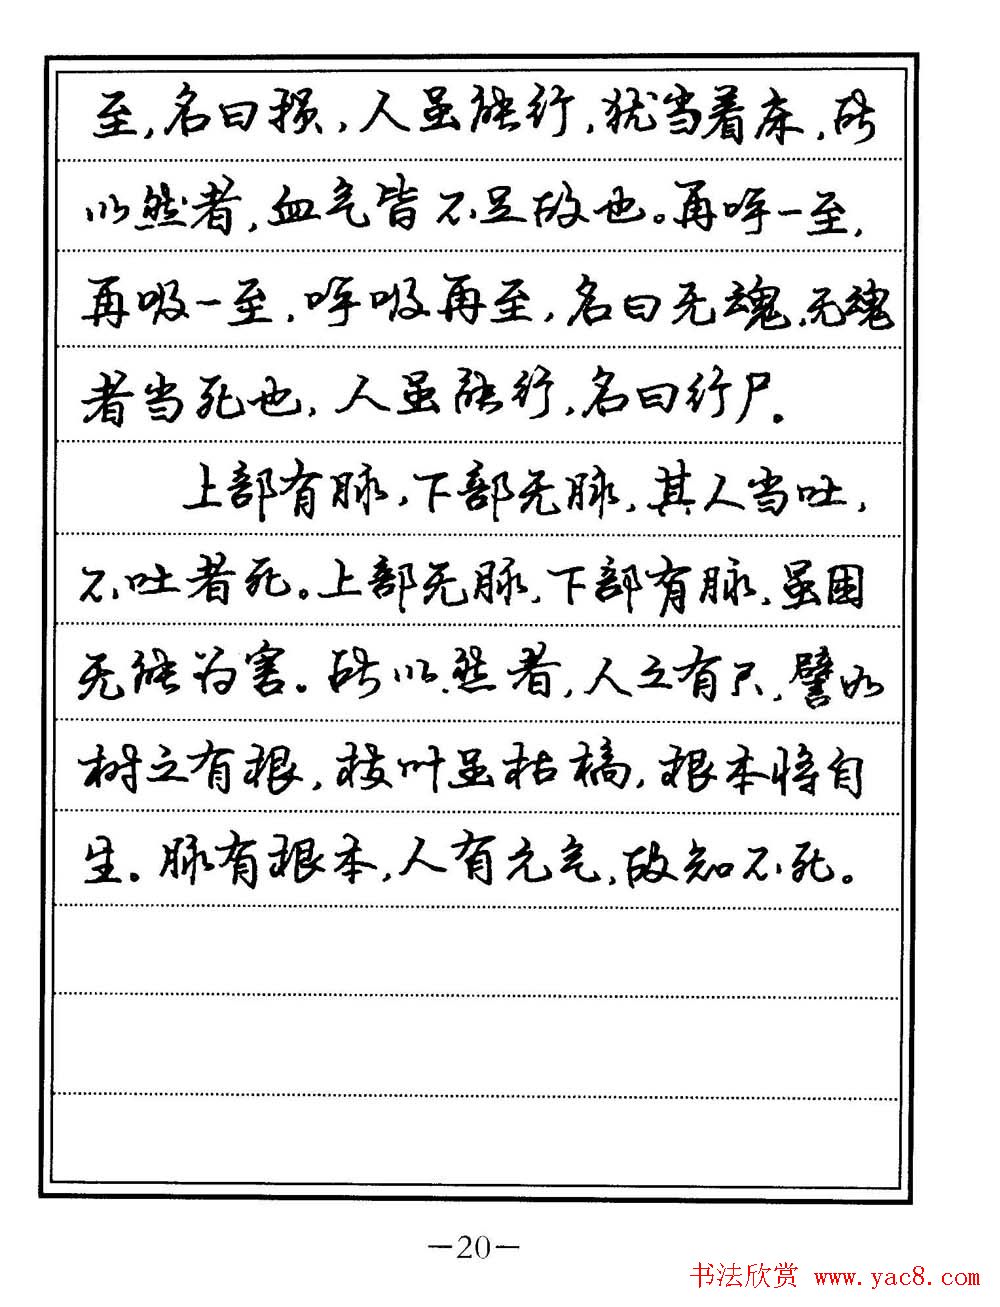 至，名曰损，人虽能行，犹当着床，所
以然者，血气皆不足故也。再呼一至，
再吸一至，呼吸再至，名曰无魂，无魂
者当死也，人虽能行，名曰行尸。
上部有脉，下部无脉，其人当吐，
不吐者死。上部无脉，下部有脉，虽困
无能为害。所以然者，人之有尺，譬如
树之有根，枝叶虽枯槁，根本将自
生。脉有根本，人有元气，故知不死。
—20—
书法欣赏 www.yac8.com